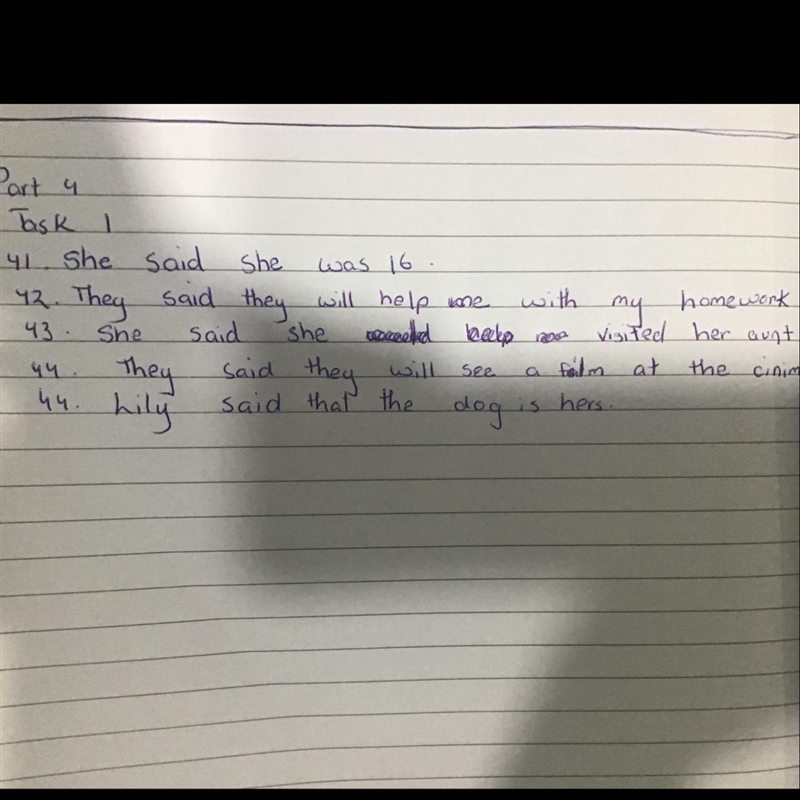 Part 4
Task 1
41. She said she was 16.
42. They said they will help me with my homework
43. She said she visited her aunt
44. They said they will see a film at the cinim
44. Lily said that the dog is hers.